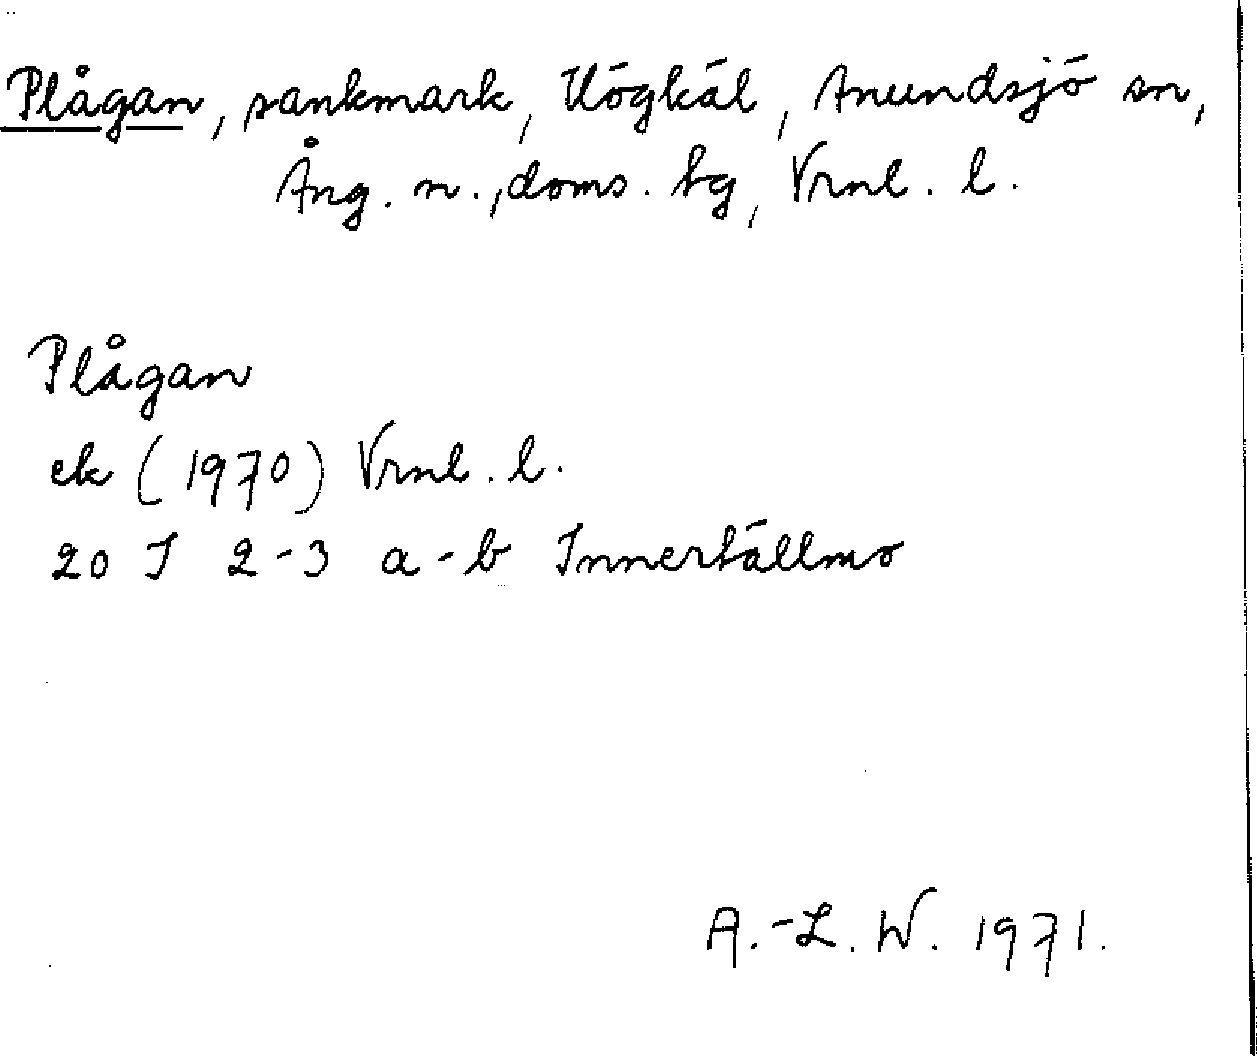 Plågan, sankmark, Högkäl, Anundsjö sn,
Ång. n., doms. bg, Vrnl. l.
Plågan
ek (1970) Vrnl. l.
20 J 2-3 a-b Innertällmo
A.-L. W. 1971.